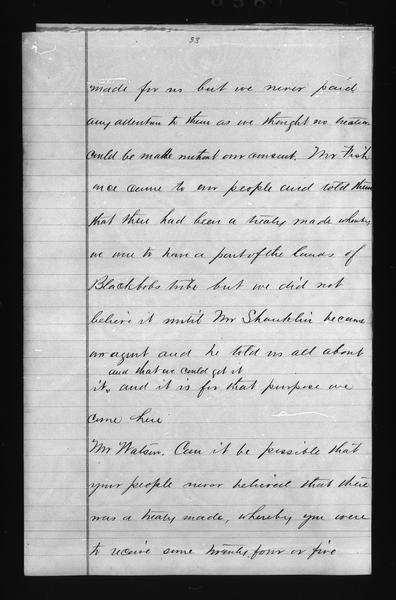 33
made for us but we never paid
any attention to them as we thought no treaties
could be made without our consent. Mr Fish
once came to our people and told them
that there had been a treaty made whereby
we were to have a part of the lands of
Blackbobs tribe but we did not
believe it until Mr Shanklin became
our agent and he told us all about
and that we could get it
it, and it is for that purpose we
come here
Mr Watson. Can it be possible that
your people never believed that there
was a treaty made, whereby you were
to receive some twenty four or five